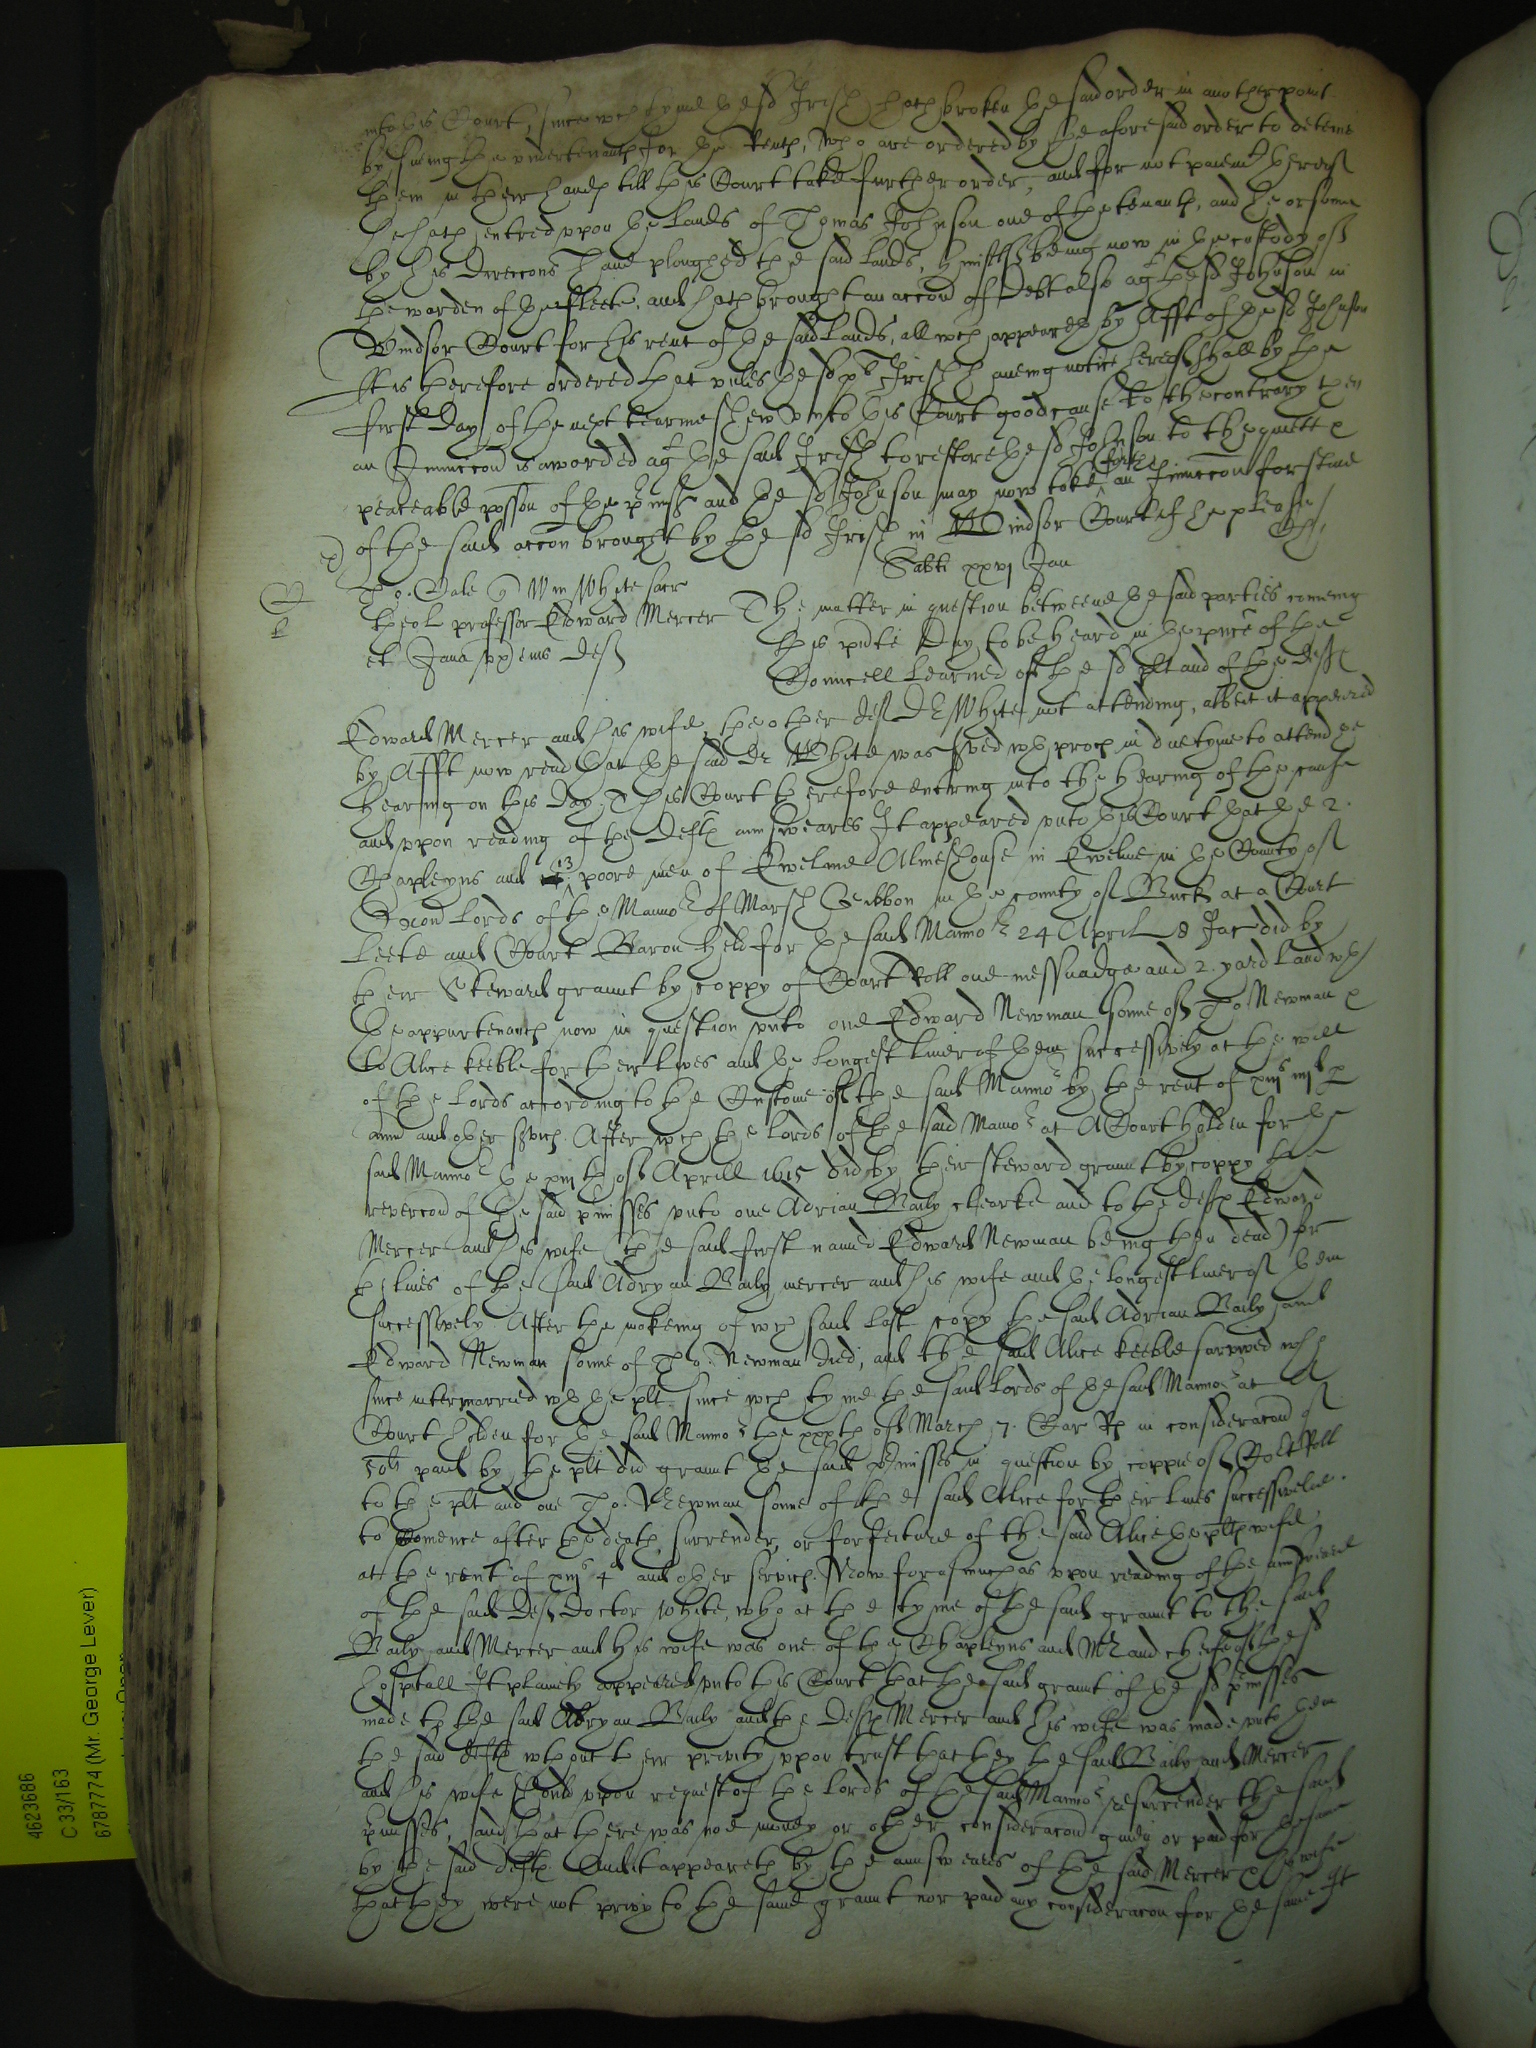 into this Court, since wch tyme the sd Irish hath broken the said order in another point
by sueing the undertenantes for the Rents, who are ordered by the aforesaid order to deteine
them in their handes till this Court take further order, and for not paiemt thereof
he hath entred upon the lands of Thomas Johnson one of the tenantes, and he or some
by his direccons have ploughed the said lands, himself being now in the custody of
the warden of the fleete, and hath brought an accon of Debt also agt the sd Johnson in
Windsor Court for his rent of the said lands, all wch appeareth by Afft of the sd Johnson
It is therefore ordered that unles the sd Irish haueing notice hereof shall by the
first day of the next tearme shew unto this Court good cause to the contrary then
an Iniunccon is awarded agt the said Irish to restore the sd Johnson to the quiett &
peaceable posson of the prmisses and the sd Johnson may now take forth an Iniunccon for staie
of the said accon brought by the sd Irish in Windsor Court if he please
Sabti xxvj Jan
Tho. Cale Wm White sacr
theol professor Edward Mercer The matter in question betweene the said parties comeing
et Jana ux eius Def this pnte day to be heard in the prnce of the
Councell learned of the sd plt and of the Deftes
Edward Mercer and his wife, the other def Dr White not attending, albeit it appeared
by Afft now read that the said Dr White was served wth proces in due tyme to attend the
hearing on this day This Court therefore entring into the hearing of the cause
and upon reading of the Deftes answeares It appeared unto this Court that the 2.
Chapleyns and 13 poore men of Ewelme Almeshouse in Ewelme in the County of
Oxon Lords of the Manor of Marsh Gibbon in the county of Buck at a Court
Leete and Court Baron held for the said Manor 24 April 8 Jac did by
their Steward graunt by coppy of Court Roll one messuadge and 2. yard land wth
the appurtenantes now in question unto one Edward Newman sonne of Tho. Newman &
to Alice keeble for their lives and the longest liver of them successively at the will
of the Lords according to the Custome of the said Manor by the rent of xiijs iiijd p
ann and other services. After wch the Lords of the said Manor at A Court holden for the
said Manor the xiijth of Aprill 1615 did by their steward graunt by coppy the
revercon of the said pmisses unto one Adrian Baily clearke and to the Deftes Edward
Mercer and his wife (the said first named Edward Newman being then dead) for
the lives of the said Adryan Baily mercer and his wife and the longest liver of them
successively After the makeing of wch said last copy the said Adrian Baily and
Edward Newman sonne of Tho. Newman died, and the said Alice keeble survived wch
since intermarried wth the plt. since wch tyme the said Lords of the said Manor at A
Court holden for the said Manor the xxxth of March 7. Car Rs in consideracon of
50li paid by the plt did graunt the said prmisses in question by coppie of Cort Roll
to the plt and one Tho. Newman sonne of the said Alice for their lives successivelie.
to Comence after the death, surrender, or forfeiture of the said Alice the pltes wife
at the rent of xiijs 4d and other services. Now forasmuch as upon reading of the answeare
of the said Def Doctor White, who at the tyme of the said graunt to the said
Baily and Mercer and his wife was one of the Chapleyns and Mr and cheife of the sd
hospitall It plainely appeared unto this Court that the said graunt of the sd prmisses
made to the said Adryan Baily and the Deftes Mercer and his wife was made unto them
the said deftes wthout their privity, upon trust that they the said Baily and Mercer
and his wife should upon request of the lords of the said Manor resurrender the said
prmisses, and that there was noe money or other consideracon given or paid for the same
by the said deftes. And it appeareth by the answeares of the said Mercer & his wife
that they were not privy to the same graunt nor paid any consideracon for the same It
4623686
C 33/163
6787774 (Mr. George Lever)